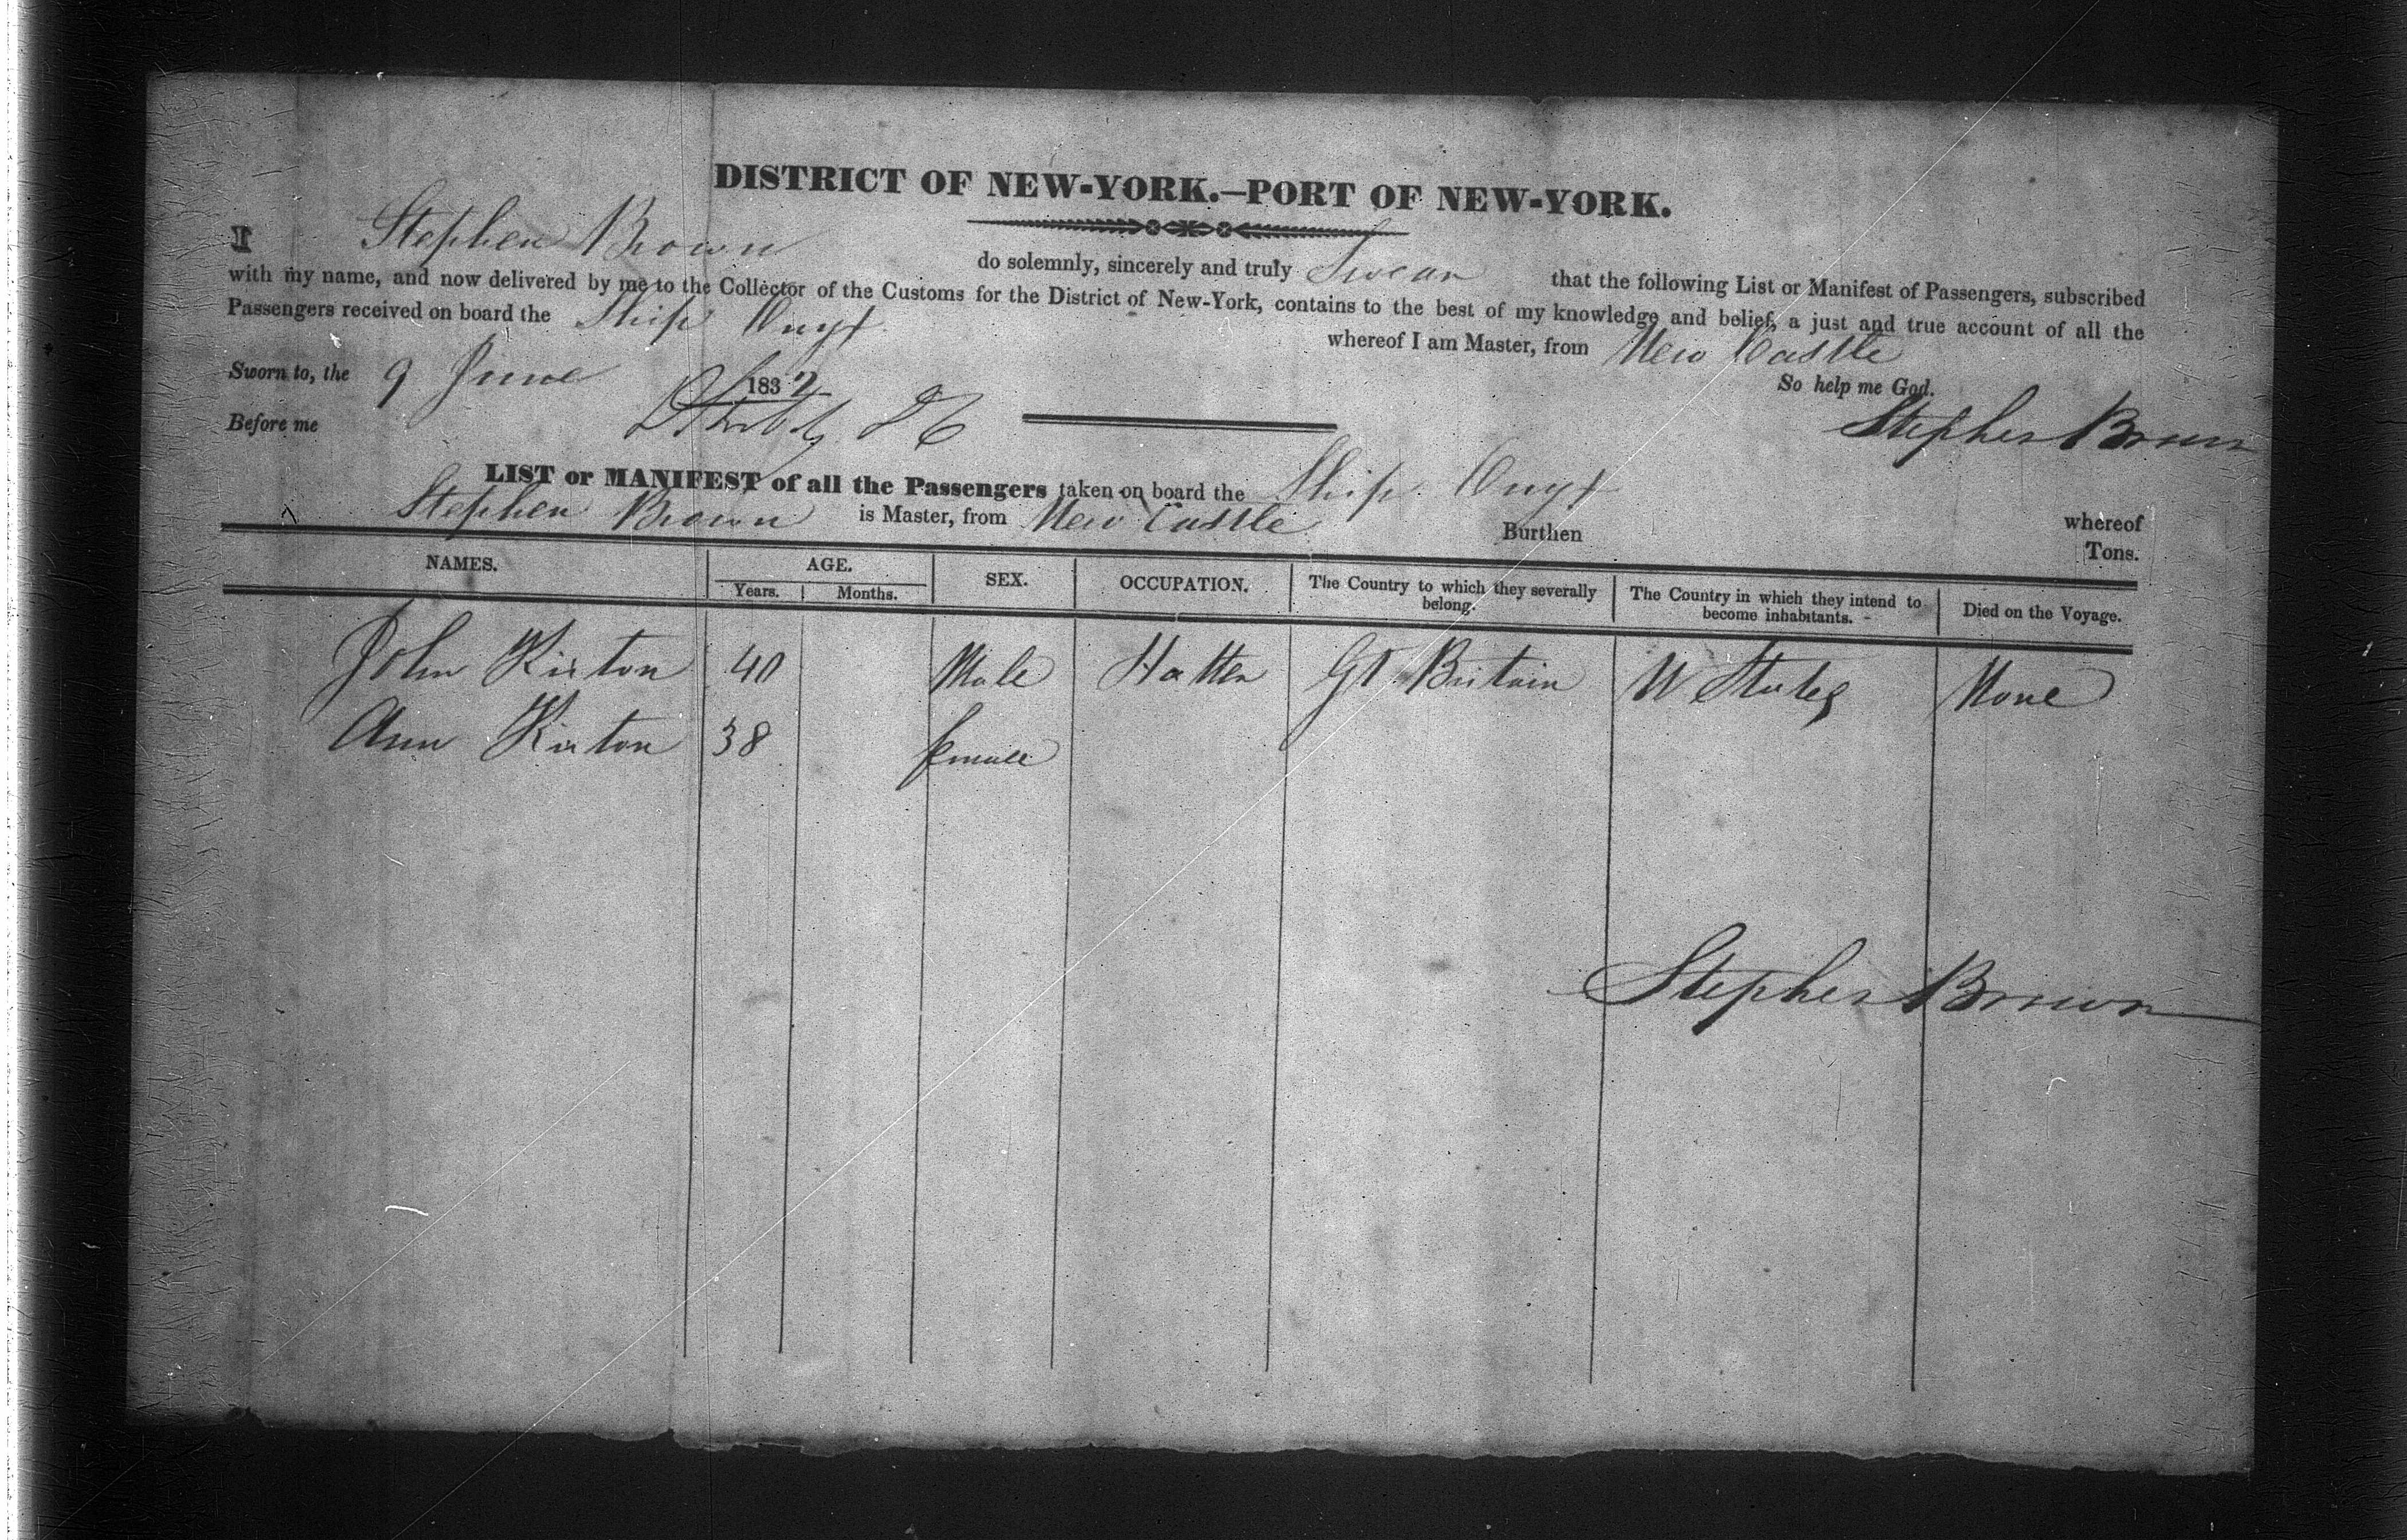 DISTRICT OF NEW-YORK.—PORT OF NEW-YORK.
I Stephen Brown do solemnly, sincerely and truly Swear that the following List or Manifest of Passengers, subscribed
with my name, and now delivered by me to the Collector of the Customs for the District of New-York, contains to the best of my knowledge and belief, a just and true account of all the
Passengers received on board the Ship Onyx whereof I am Master, from New Castle
Sworn to, the 9 June 1832 So help me God.
Before me Stephen Brown
LIST or MANIFEST of all the Passengers taken on board the Ship Onyx whereof
Stephen Brown is Master, from New Castle Burthen Tons.
NAMES. AGE. SEX. OCCUPATION. The Country to which they severally belong. The Country in which they intend to become inhabitants. Died on the Voyage.
Years. Months.
John Kixton 40 Male Hatter Gt Britain U States None
Ann Kixton 38 female
Stephen Brown